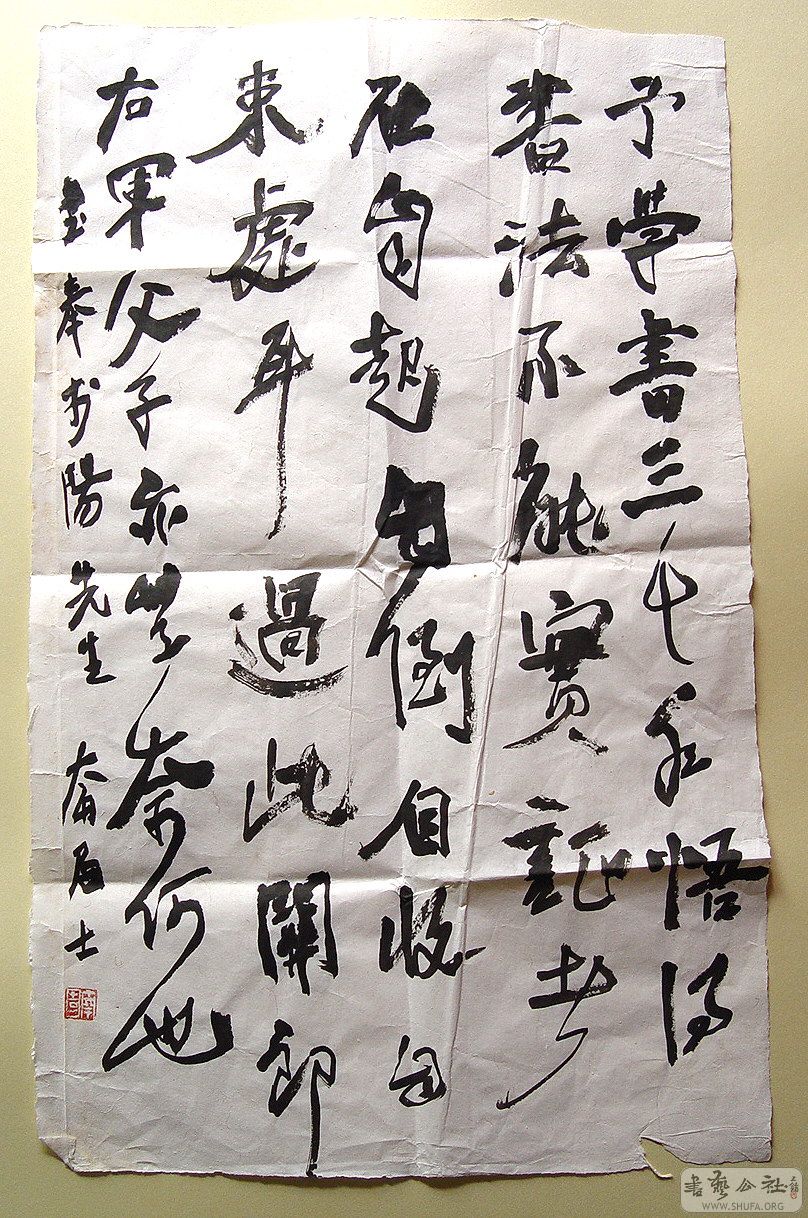 予學書三十年悟得
書法不能實證者
在自起自倒自收自
束處耳過此關即
右軍父子亦無奈何也
奉於陽先生 居士
書藝公社
WWW.SHUFA.ORG